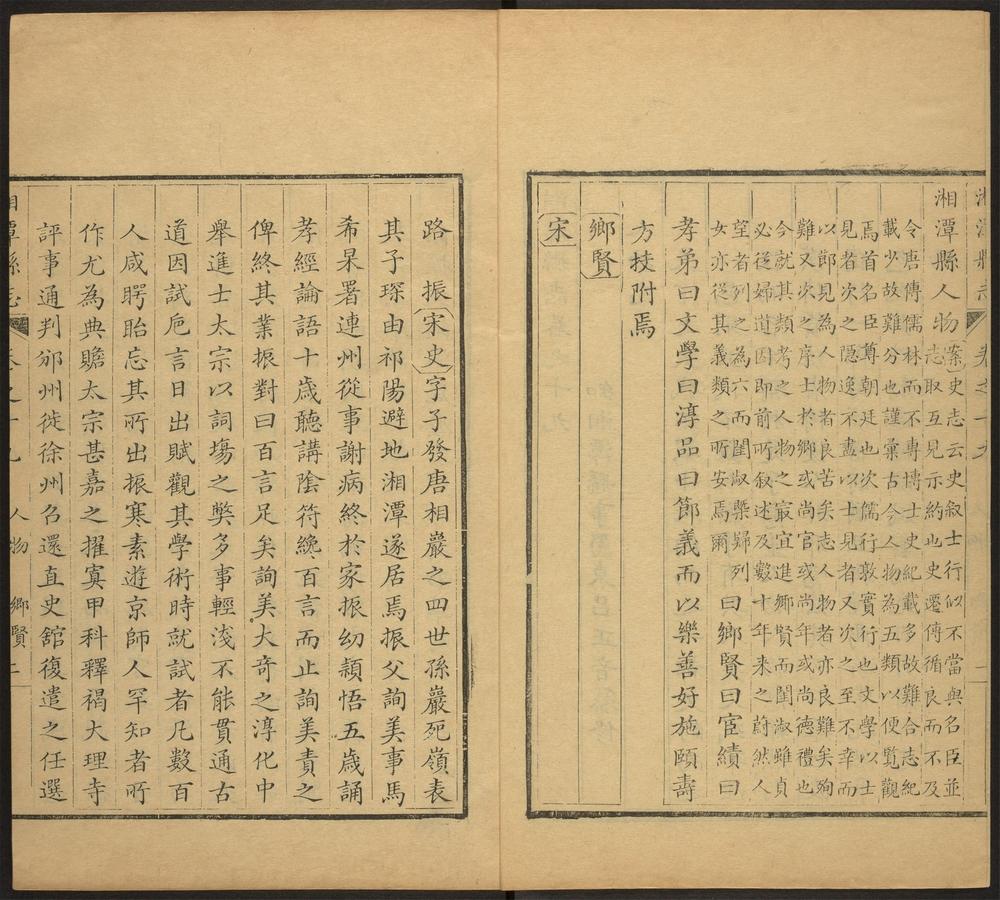 湘潭縣志 卷之十九 一
湘潭縣人物
案史志云史叙士行似不當與名臣並
志取互見示約也史遷傳循良而不及
令唐傳儒林而不專博士史紀載多故難合志紀
載少故難分也謹彙古今人物為五類以便覧觀
焉首名臣尊朝廷也次儒行敦實行也文學以士
見者次之隱逸不盡以士見者又次之至不幸而
以節見為人物者良苦矣志人物者亦良難矣殉
難又次之序士於鄉或尚官或尚年或尚德禮也
今就其類考之人物之最宜進鄉賢而閨淑雖貞
必從婦道因即前所叙述及數十年来之蔚然人
望者列之為六而閨淑嫠婦列
女亦從其義類之所安焉爾
曰鄉賢曰宦績曰
孝弟曰文學曰淳品曰節義而以樂善好施頤壽
方技附焉
鄉賢
宋
路振宋史字子發唐相巖之四世孫巖死嶺表
其子琛由祁陽避地湘潭遂居焉振父詢美事馬
希杲署連州從事謝病終於家振幼穎悟五歲誦
孝經論語十歲聽講陰符纔百言而止詢美責之
俾終其業振對曰百言足矣詢美大奇之淳化中
舉進士太宗以詞塲之獘多事輕淺不能貫通古
道因試巵言日出賦觀其學術時就試者凢數百
人咸䁱眙忘其所出振寒素遊京師人罕知者所
作尤為典贍太宗甚嘉之擢寘甲科釋褐大理寺
評事通判邠州徙徐州召還直史舘復遣之任選
湘潭縣志 卷之十九 人物 鄉賢 二